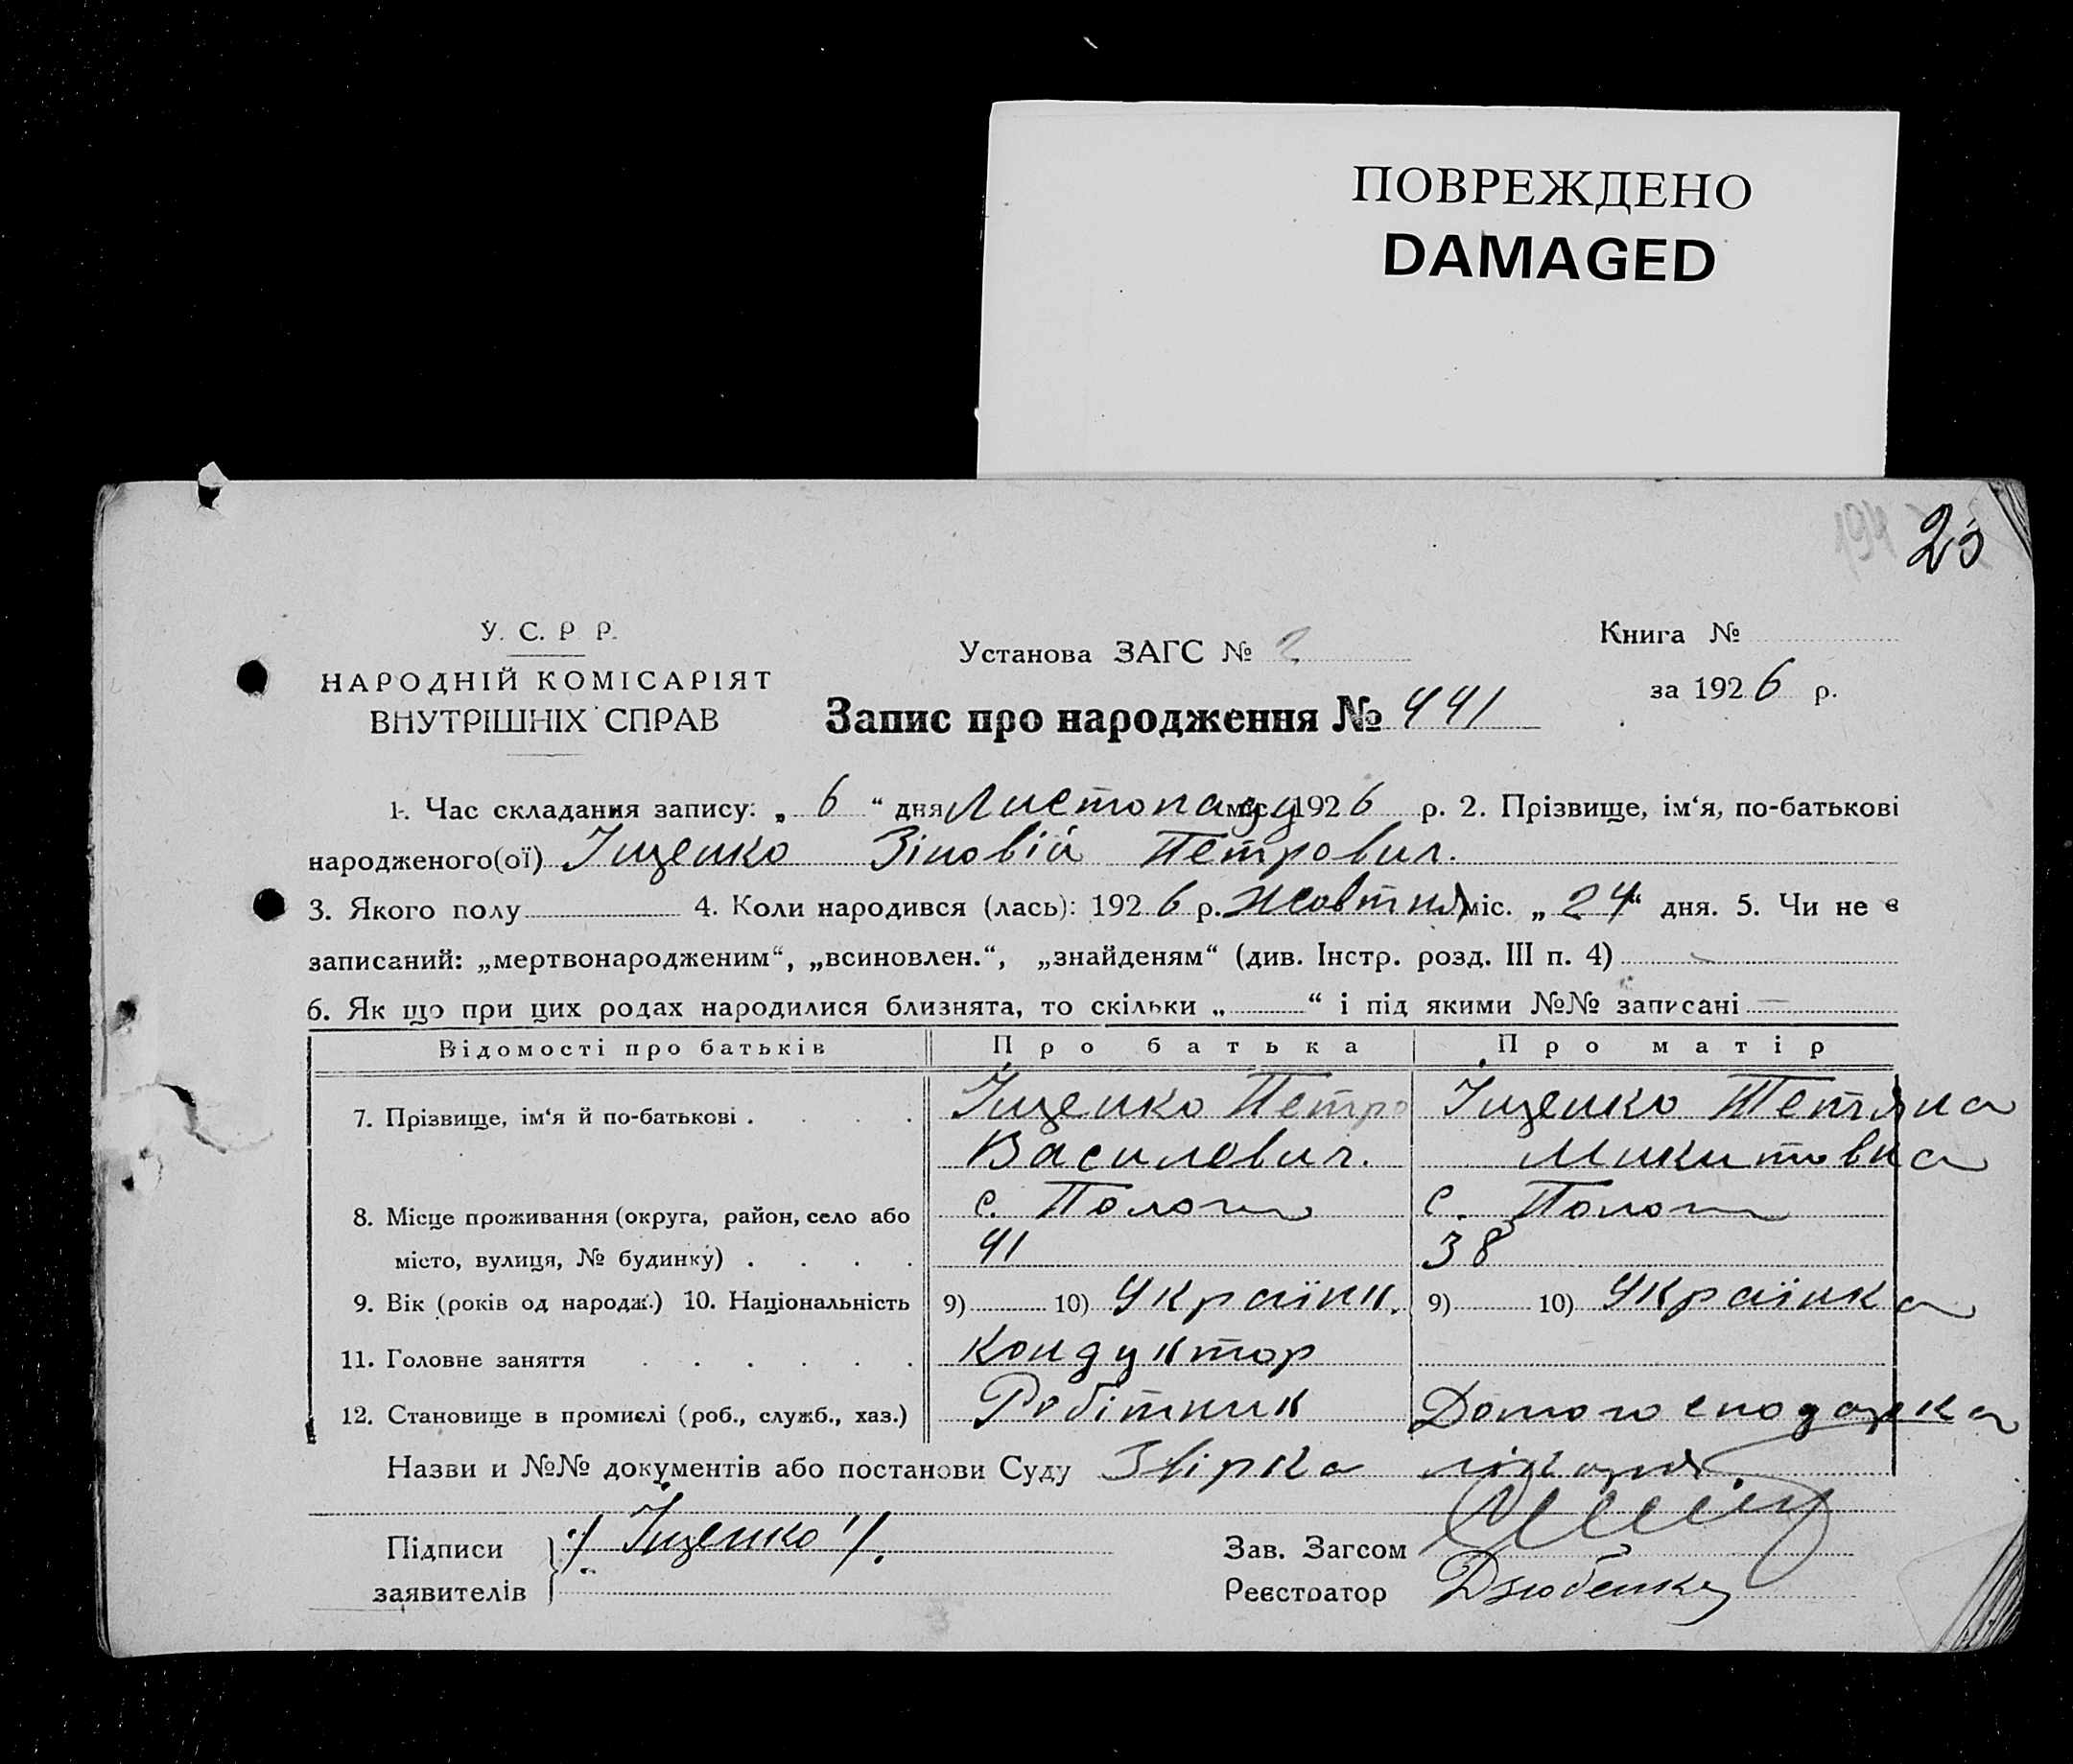 ПОВРЕЖДЕНО
DAMAGED
194 23
У. С. Р Р.
НАРОДНІЙ КОМІСАРІЯТ
ВНУТРІШНІХ СПРАВ
Установа ЗАГС № 2
Запис про народження № 441
Книга №
за 1926 р.
1. Час складання запису: „ 6 “ дня Листопаду міс. 1926 р. 2. Прізвище, ім‘я, по-батькові
народженого(ої) Іщенко Зіновій Петрович.
3. Якого полу 4. Коли народився (лась): 1926 р. Жовтня міс. „ 24 “ дня. 5. Чи не є
записаний: „мертвонародженим“, „всиновлен.“, „знайденям“ (див. Інстр. розд. III п. 4)
6. Як що при цих родах народилися близнята, то скільки „ “ і під якими №№ записані —
Відомості про батьків Про батька Про матір
7. Прізвище, ім‘я й по-батькові . . . . Іщенко Петро Іщенко Тетяна
Василович. Микитовна
8. Місце проживання (округа, район, село або с. Пологи с. Пологи
місто, вулиця, № будинку) . . . . 41 38
9. Вік (років од народж.) 10. Національність 9) 10) Українц. 9) 10) Українка
11. Головне заняття . . . . . . Кондуктор
12. Становище в промислі (роб., служб., хаз.) Робітник Домогосподарка
Назви и №№ документів або постанови Суду Звірка лікаря.
Підписи
заявителів
/Іщенко/.
Зав. Загсом
Реєстратор Дзюбенко